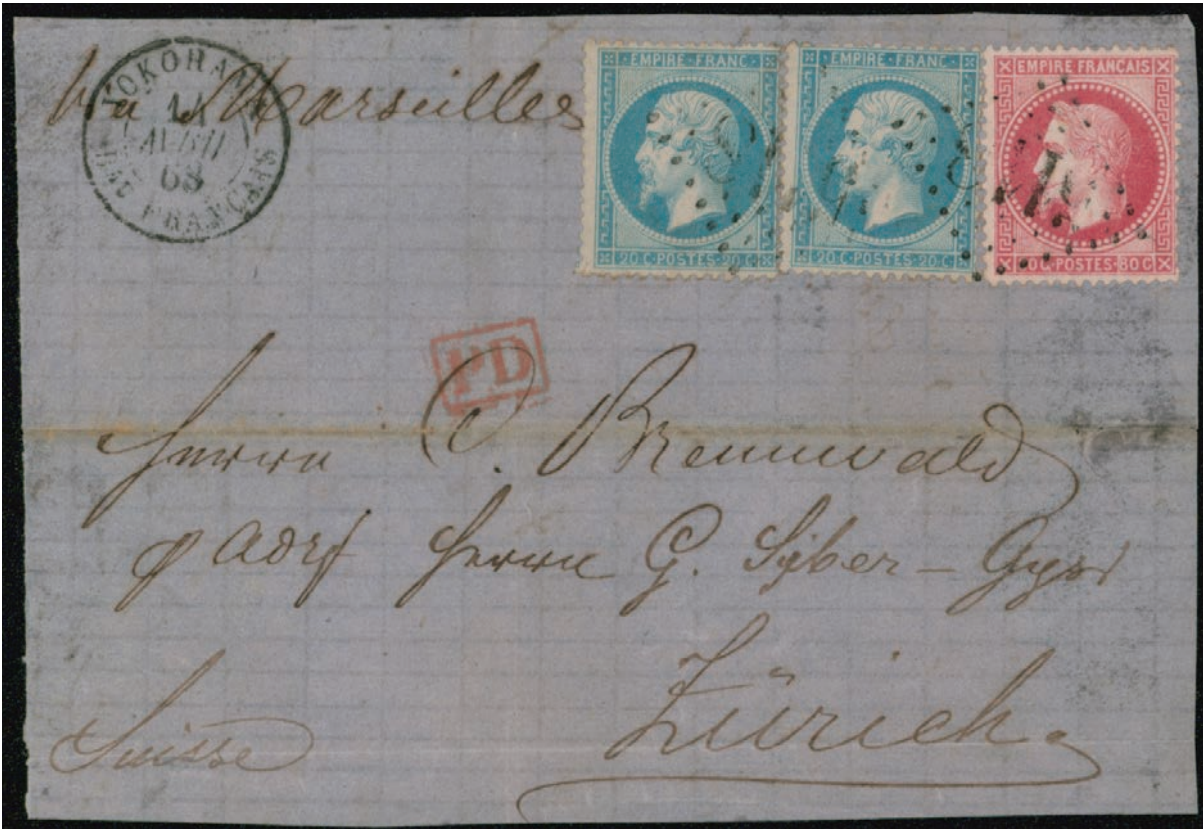 YOKOHAMA
AVRIL
68
BAU FRANÇAIS
via Marseilles
EMPIRE FRANC.
20 C·POSTES·20 C
EMPIRE FRANC.
20 C·POSTES·20 C
EMPIRE FRANÇAIS
80 C·POSTES·80 C
PD
Herrn C. Brennwald
p adrs Herrn G. Syber-Gysi
Zürich.
Suisse